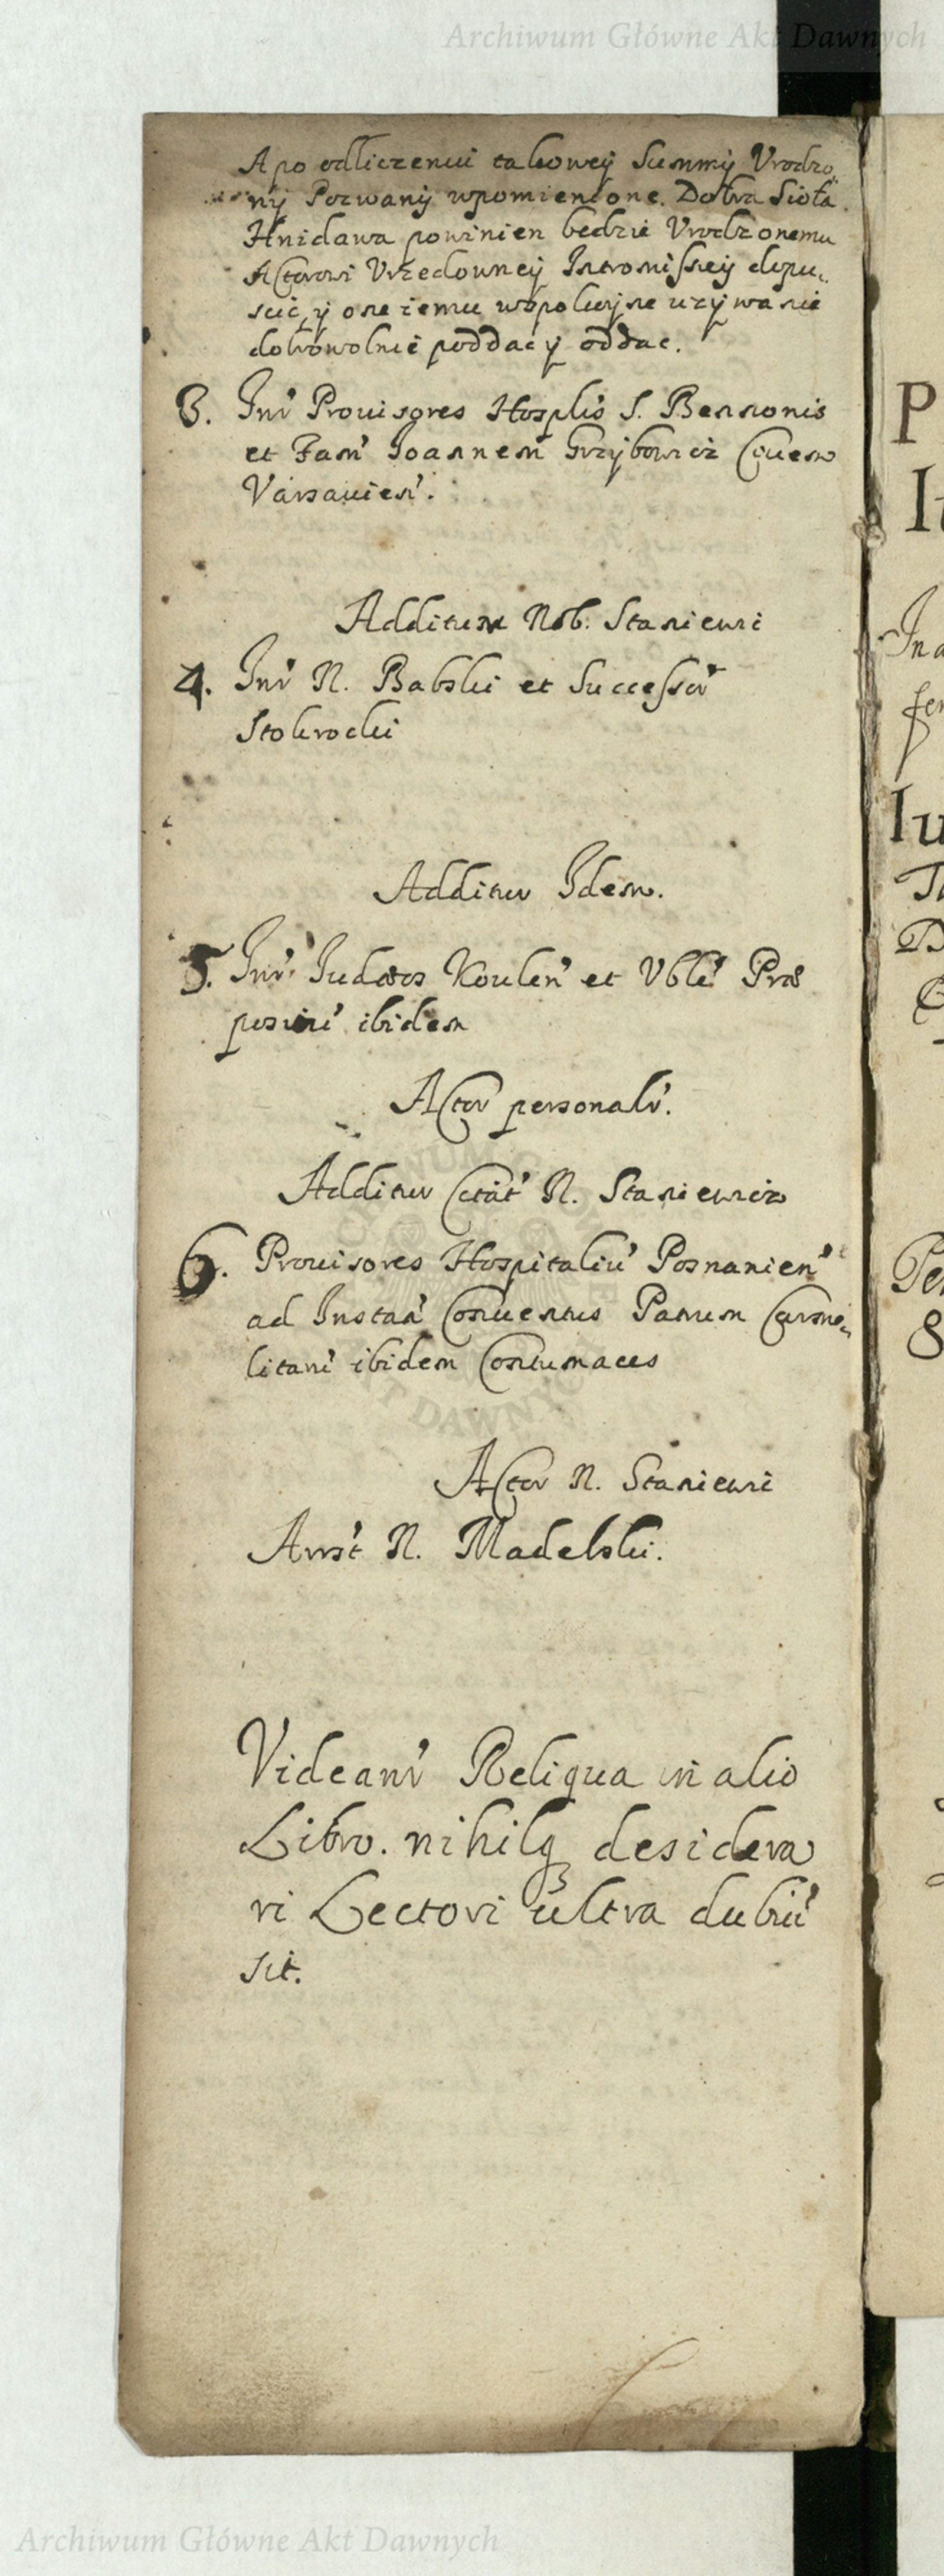 Archiwum Główne Akt Dawnych
A po odliczeniu takowey Summy Urodzo
ny Pozwany wpomienione Dobra Sioła
Hnidawa powinien będzie Urodzonemu
Actorowi Urzedowney Intromissiey dopu
scic, y one iemu wspokoyne uzywanie
dobrowolnie poddac y oddac.
3. Intr Prouisores Hosplis S. Bennonis
et Fam Joannem Grzybowicz Ciuem
Varsauien.
Additur Nob. Staniewi
4. Intr N. Babski et Successor
Stokrocki
Additur Idem.
5. Intr Judæos Koulen et Vble Præ
ibidem
Actor personalr.
Additur Citat N. Staniewicz
6. Prouisores Hospitaliu Posnanien
ad Instaã Conuentus Patrum Carme
litaru ibidem Contumaces
Actor N. Staniewi
N. Madelski.
Videant Reliqua in alio
Libro. nihilq desidera
ri Lectori ultra dubiu
sit.
P
It
Archiwum Główne Akt Dawnych